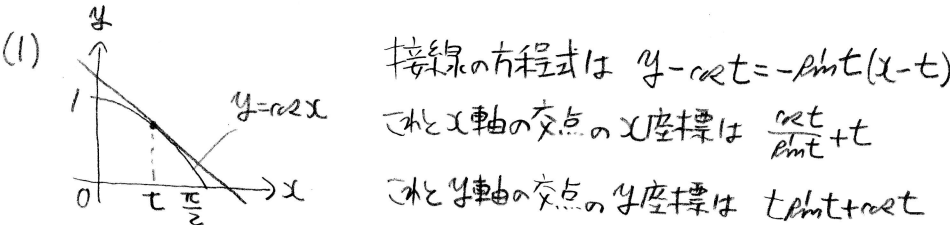 (1)
y
1
y=cos x
0 t π/2 x
接線の方程式は y-cos t=-sin t(x-t)
これとx軸の交点のx座標は cos t/sin t+t
これとy軸の交点のy座標は t sin t+cos t